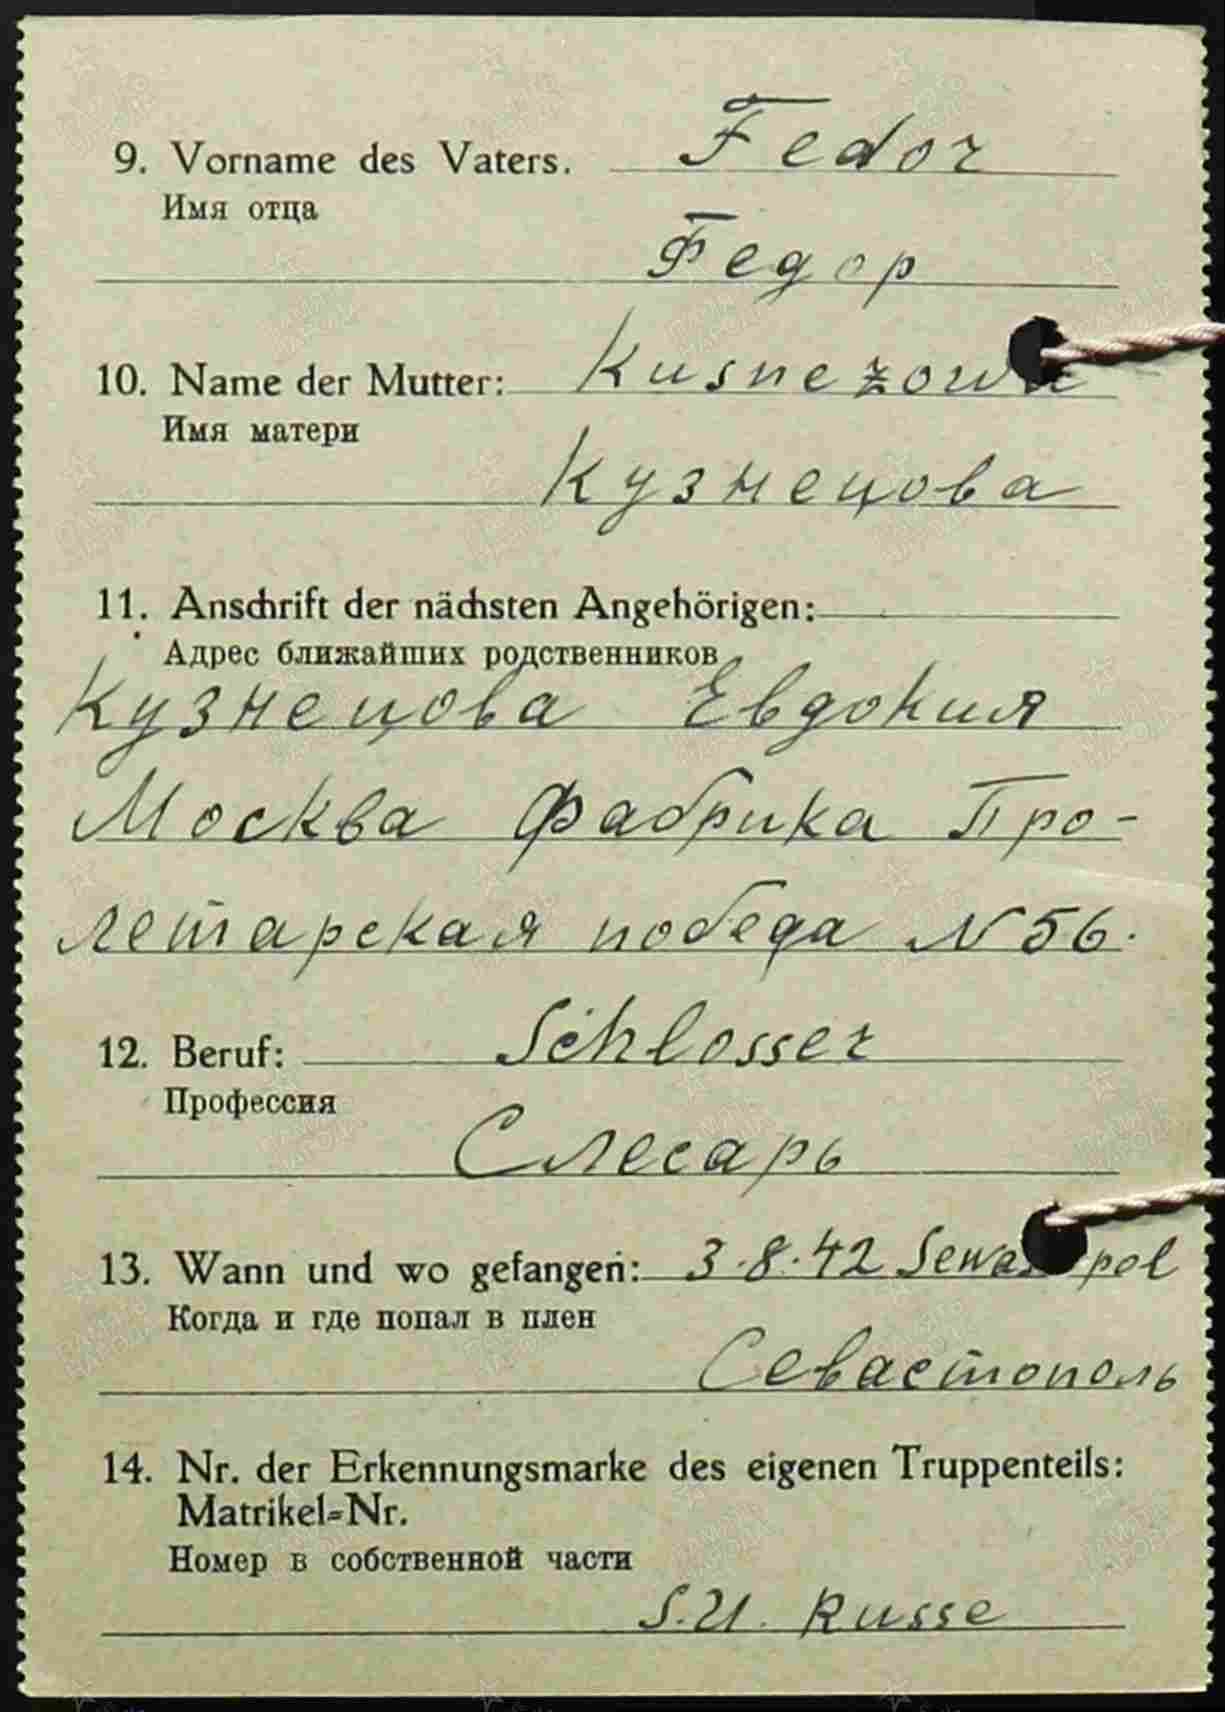 9. Vorname des Vaters. Fedor
Имя отца
Федор
10. Name der Mutter: Kusnezowa
Имя матери
Кузнецова
11. Anschrift der nächsten Angehörigen:
Адрес ближайших родственников
Кузнецова Евдокия
Москва Фабрика Про-
летарская победа N 56.
12. Beruf: Schlosser
Профессия
Слесарь
13. Wann und wo gefangen: 3.8.42
Когда и где попал в плен
Севастополь
14. Nr. der Erkennungsmarke des eigenen Truppenteils:
Matrikel-Nr.
Номер в собственной части
S.U. Russe